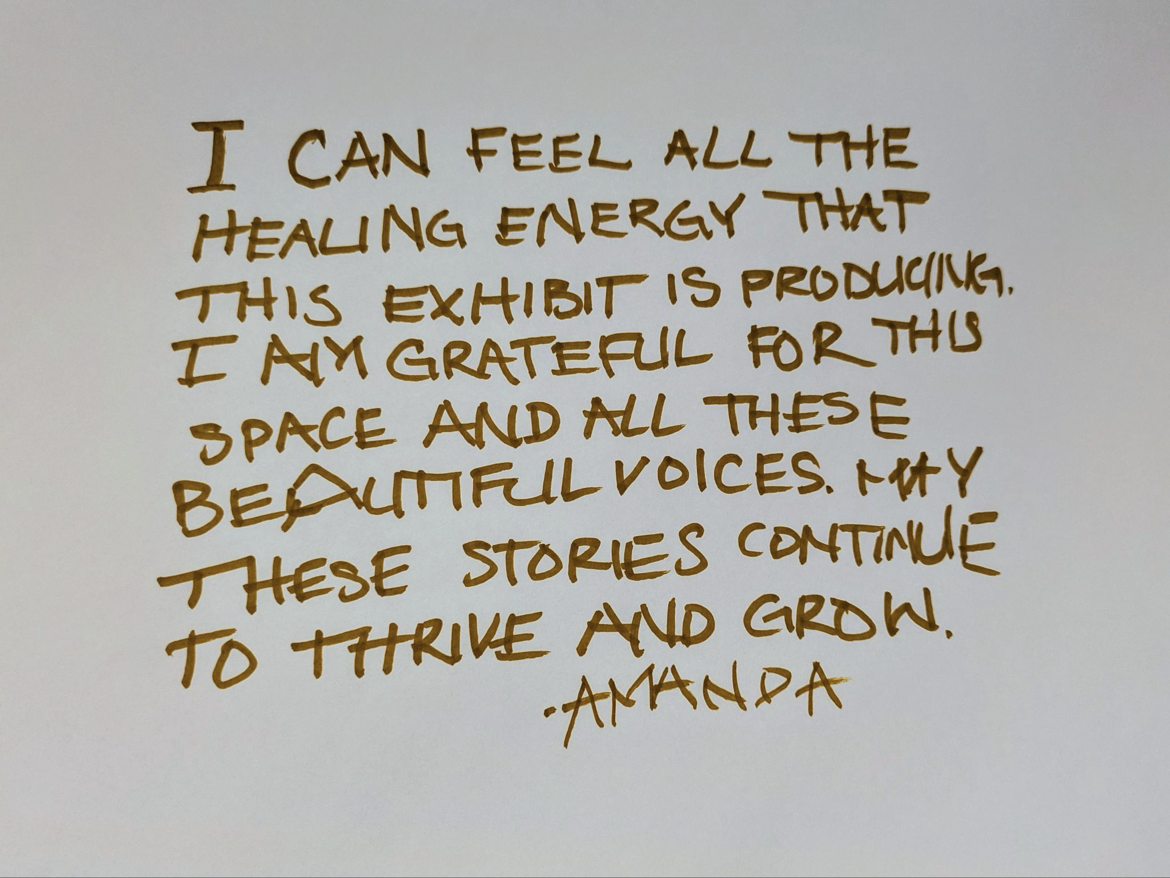 I CAN FEEL ALL THE
HEALING ENERGY THAT
THIS EXHIBIT IS PRODUCING.
I AM GRATEFUL FOR THIS
SPACE AND ALL THESE
BEAUTIFUL VOICES. MAY
THESE STORIES CONTINUE
TO THRIVE AND GROW.
-AMANDA